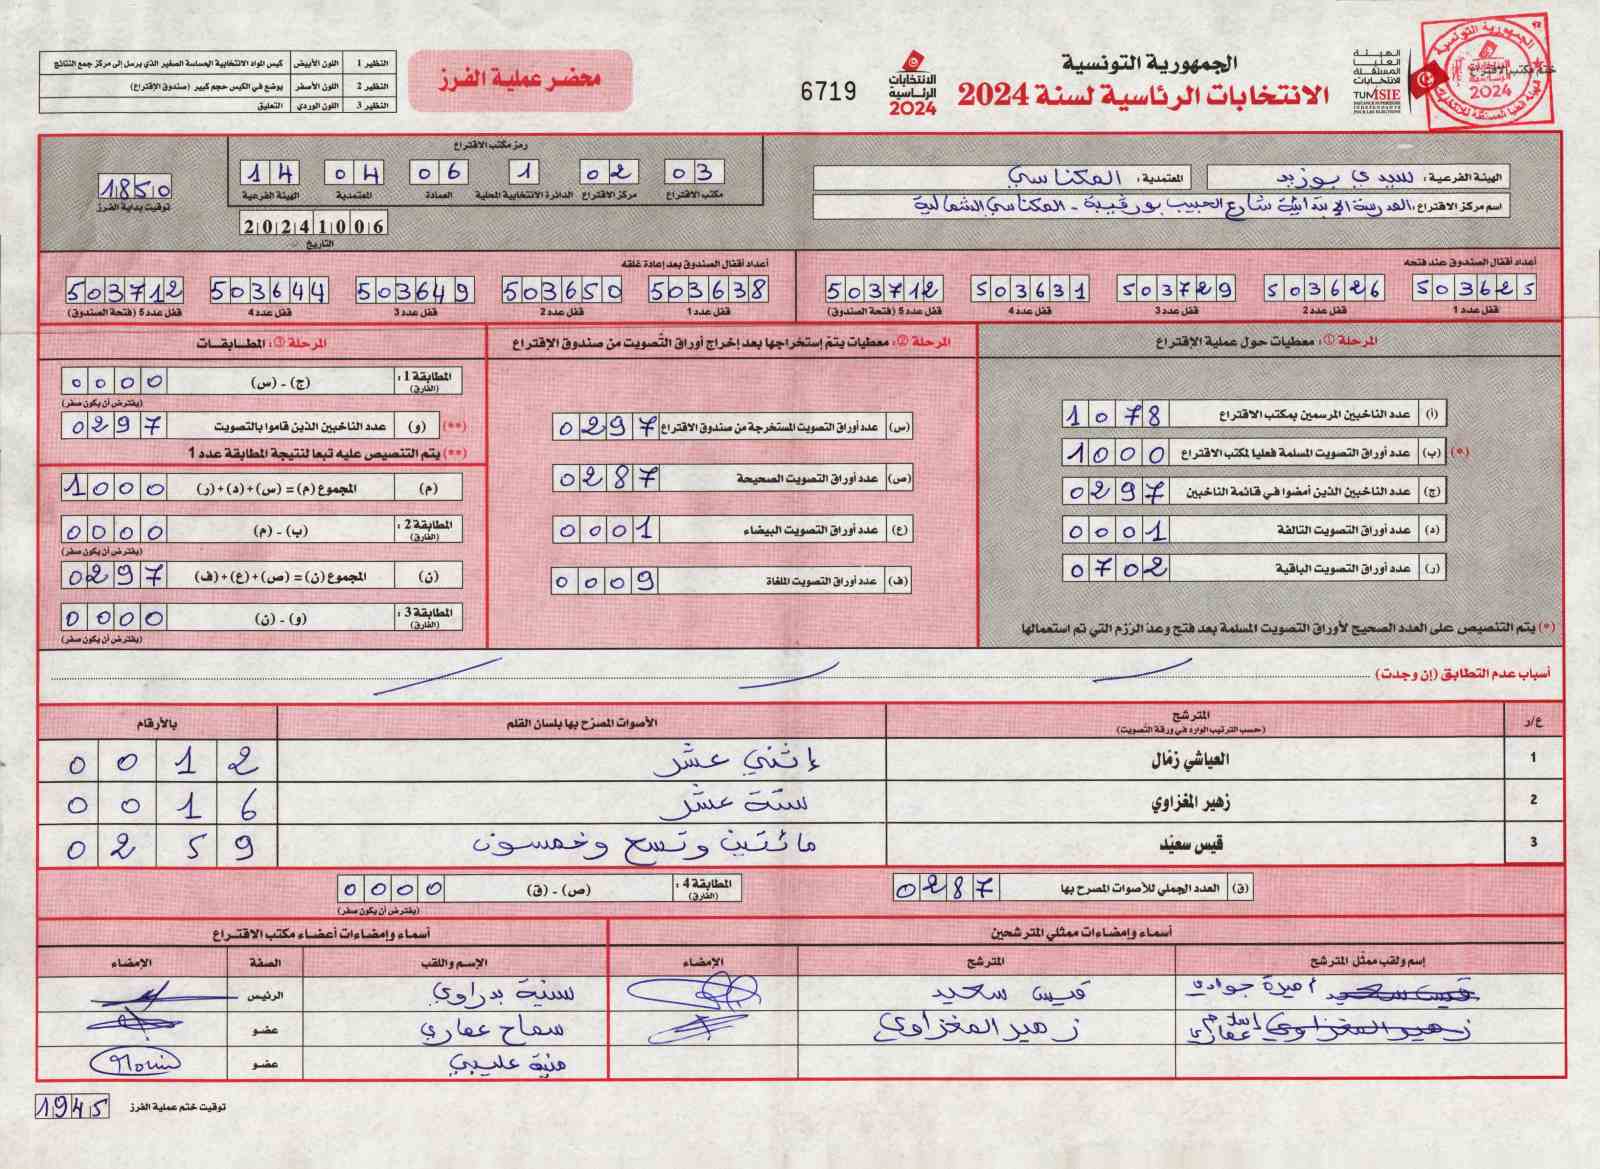 الجمهورية التونسية
الانتخابات الرئاسية لسنة 2024
الهيئة العليا المستقلة للانتخابات
TUNISIE
INSTANCE SUPERIEURE INDEPENDANTE POUR LES ELECTIONS
ختم مكتب الاقتراع
الجمهورية التونسية
2024
الانتخابات الرئاسية 2024
6719
محضر عملية الفرز
النظير 1 اللون الأبيض كيس المواد الانتخابية الحساسة الصغير الذي يرسل إلى مركز جمع النتائج
النظير 2 اللون الأصفر يوضع في الكيس حجم كبير (صندوق الإقتراع)
النظير 3 اللون الوردي التعليق
الهيئة الفرعية: سيدي بوزيد المعتمدية: المكناسي
اسم مركز الاقتراع: المدرسة الإبتدائية شارع الحبيب بورقيبة - المكناسي الشمالية
رمز مكتب الاقتراع
03 02 1 06 04 14
مكتب الاقتراع مركز الاقتراع الدائرة الانتخابية المحلية العمادة المعتمدية الهيئة الفرعية
20241006
التاريخ
1850
توقيت بداية الفرز
أعداد أقفال الصندوق عند فتحه
503625 503626 503729 503631 503712
قفل عدد 1 قفل عدد 2 قفل عدد 3 قفل عدد 4 قفل عدد 5 (فتحة الصندوق)
أعداد أقفال الصندوق بعد إعادة غلقه
503638 503650 503649 503644 503712
قفل عدد 1 قفل عدد 2 قفل عدد 3 قفل عدد 4 قفل عدد 5 (فتحة الصندوق)
المرحلة ①: معطيات حول عملية الإقتراع
(أ) عدد الناخبين المرسمين بمكتب الاقتراع 1078
(*) (ب) عدد أوراق التصويت المسلمة فعليا لمكتب الاقتراع 1000
(ج) عدد الناخبين الذين أمضوا في قائمة الناخبين 0297
(د) عدد أوراق التصويت التالفة 0001
(ر) عدد أوراق التصويت الباقية 0702
(*) يتم التنصيص على العدد الصحيح لأوراق التصويت المسلمة بعد فتح وعد الرزم التي تم استعمالها
المرحلة ②: معطيات يتم إستخراجها بعد إخراج أوراق التصويت من صندوق الإقتراع
(س) عدد أوراق التصويت المستخرجة من صندوق الاقتراع 0297
(ص) عدد أوراق التصويت الصحيحة 0287
(ع) عدد أوراق التصويت البيضاء 0001
(ف) عدد أوراق التصويت الملغاة 0009
المرحلة ③: المطابقات
المطابقة 1: (الفارق) (ج) - (س) 0000
(يفترض أن يكون صفر)
(**) (و) عدد الناخبين الذين قاموا بالتصويت 0297
(**) يتم التنصيص عليه تبعا لنتيجة المطابقة عدد 1
(م) المجموع (م) = (س)+(د)+(ر) 1000
المطابقة 2: (الفارق) (ب) - (م) 0000
(يفترض أن يكون صفر)
(ن) المجموع (ن) = (ص)+(ع)+(ف) 0297
المطابقة 3: (الفارق) (و) - (ن) 0000
(يفترض أن يكون صفر)
أسباب عدم التطابق (إن وجدت)
ع/ر المترشح (حسب الترتيب الوارد في ورقة التصويت) الأصوات المصرّح بها بلسان القلم بالأرقام
1 العياشي زمّال إثني عشر 0012
2 زهير المغزاوي ستة عشر 0016
3 قيس سعيّد مائتين وتسع وخمسون 0259
(ق) العدد الجملي للأصوات المصرح بها 0287
المطابقة 4: (الفارق) (ص) - (ق) 0000
(يفترض أن يكون صفر)
أسماء وإمضاءات ممثلي المترشحين
إسم ولقب ممثل المترشح المترشح الإمضاء
قيس سعيد أميرة جوادي قيس سعيد
زهير المغزاوي عفاري زهير المغزاوي
أسماء وإمضاءات أعضاء مكتب الاقتراع
الإسم واللقب الصفة الإمضاء
سنية بدراوي الرئيس
سماح عفاري عضو
منية عليبي عضو
توقيت ختم عملية الفرز 1945